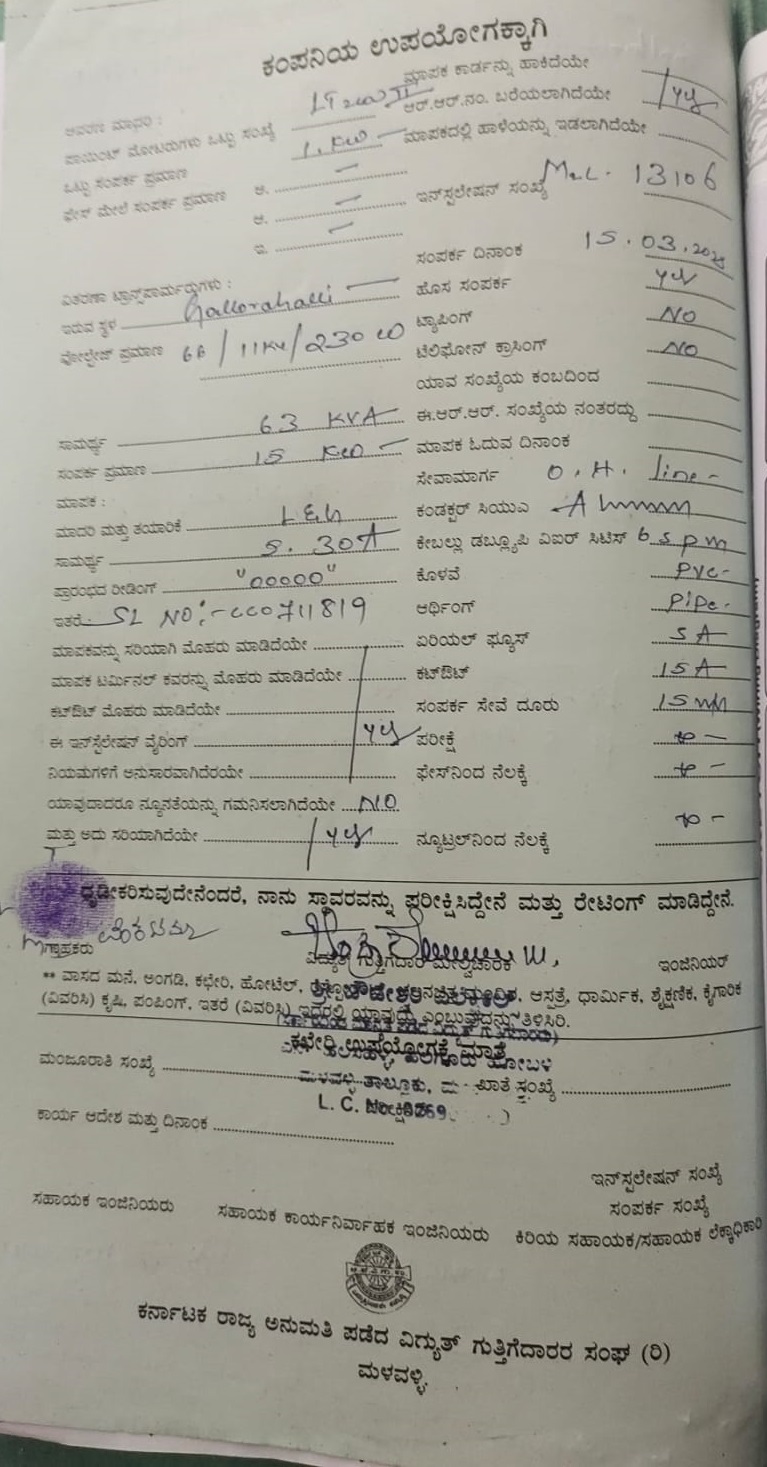 ಕಂಪನಿಯ ಉಪಯೋಗಕ್ಕಾಗಿ
ಮಾಪಕ ಕಾರ್ಡನ್ನು ಹಾಕಿದೆಯೇ
ಆವರಣ ಮಾದರಿ : LT2(a) II ಆರ್.ಆರ್.ನಂ. ಬರೆಯಲಾಗಿದೆಯೇ yes
ಪಾಯಿಂಟ್ ಮೋಟಾರುಗಳು ಒಟ್ಟು ಸಂಖ್ಯೆ 1. KW ಮಾಪಕದಲ್ಲಿ ಹಾಳೆಯನ್ನು ಇಡಲಾಗಿದೆಯೇ
ಒಟ್ಟು ಸಂಪರ್ಕ ಪ್ರಮಾಣ
ಫೇಸ್ ಮೇಲೆ ಸಂಪರ್ಕ ಪ್ರಮಾಣ ಅ. ಇನ್‌ಸ್ಟಲೇಷನ್ ಸಂಖ್ಯೆ 13106
ಆ.
ಇ. ಸಂಪರ್ಕ ದಿನಾಂಕ 15.03.
ವಿತರಣಾ ಟ್ರಾನ್ಸ್‌ಫಾರ್ಮರ್‍ರುಗಳು : ಹೊಸ ಸಂಪರ್ಕ yes
ಇರುವ ಸ್ಥಳ Gallorahalli ಟ್ಯಾಪಿಂಗ್ NO
ವೋಲ್ಟೇಜ್ ಪ್ರಮಾಣ 66/11KV/230 ಟೆಲಿಫೋನ್ ಕ್ರಾಸಿಂಗ್ NO
ಯಾವ ಸಂಖ್ಯೆಯ ಕಂಬದಿಂದ
ಸಾಮರ್ಥ್ಯ 63 KVA ಈ.ಆರ್.ಆರ್. ಸಂಖ್ಯೆಯ ನಂತರದ್ದು
ಸಂಪರ್ಕ ಪ್ರಮಾಣ 15 KW ಮಾಪಕ ಓದುವ ದಿನಾಂಕ
ಮಾಪಕ : ಸೇವಾಮಾರ್ಗ O.H. line
ಮಾದರಿ ಮತ್ತು ತಯಾರಿಕೆ L&G ಕಂಡಕ್ಟರ್ ಸಿಯುಎ
ಸಾಮರ್ಥ್ಯ 5.30A ಕೇಬಲ್ಲು ಡಬ್ಲ್ಯೂಪಿ ವಿಐರ್ ಸಿಟಿಸ್
ಪ್ರಾರಂಭದ ರೀಡಿಂಗ್ "00000" ಕೊಳವೆ PVC
ಇತರೆ SL NO:- CC0711819 ಆರ್ಥಿಂಗ್ Pipe
ಮಾಪಕವನ್ನು ಸರಿಯಾಗಿ ಮೊಹರು ಮಾಡಿದೆಯೇ ಏರಿಯಲ್ ಫ್ಯೂಸ್ 5A
ಮಾಪಕ ಟರ್ಮಿನಲ್ ಕವರನ್ನು ಮೊಹರು ಮಾಡಿದೆಯೇ ಕಟ್‌ಔಟ್ 15A
ಕಟ್‌ಔಟ್ ಮೊಹರು ಮಾಡಿದೆಯೇ ಸಂಪರ್ಕ ಸೇವೆ ದೂರು
ಈ ಇನ್‌ಸ್ಟಲೇಷನ್ ವೈರಿಂಗ್ yes ಪರೀಕ್ಷೆ
ನಿಯಮಗಳಿಗೆ ಅನುಸಾರವಾಗಿದೆರಯೇ ಫೇಸ್‌ನಿಂದ ನೆಲಕ್ಕೆ
ಯಾವುದಾದರೂ ನ್ಯೂನತೆಯನ್ನು ಗಮನಿಸಲಾಗಿದೆಯೇ NO
ಮತ್ತು ಅದು ಸರಿಯಾಗಿದೆಯೇ yes ನ್ಯೂಟ್ರಲ್‌ನಿಂದ ನೆಲಕ್ಕೆ
ಧೃಡೀಕರಿಸುವುದೇನೆಂದರೆ, ನಾನು ಸ್ಥಾವರವನ್ನು ಪರೀಕ್ಷಿಸಿದ್ದೇನೆ ಮತ್ತು ರೇಟಿಂಗ್ ಮಾಡಿದ್ದೇನೆ.
ಗ್ರಾಹಕರು ವಿದ್ಯುತ್ ಗುತ್ತಿಗೆದಾರ ಮೇಲ್ವಿಚಾರಕ ಇಂಜಿನಿಯರ್
** ವಾಸದ ಮನೆ, ಅಂಗಡಿ, ಕಛೇರಿ, ಹೋಟೆಲ್, ಆಸ್ಪತ್ರೆ, ಧಾರ್ಮಿಕ, ಶೈಕ್ಷಣಿಕ, ಕೈಗಾರಿಕೆ
(ವಿವರಿಸಿ) ಕೃಷಿ, ಪಂಪಿಂಗ್, ಇತರೆ (ವಿವರಿಸಿ) ಇದರಲ್ಲಿ ಯಾವುದು ಎಂಬುವುದನ್ನು ತಿಳಿಸಿರಿ.
ಕಛೇರಿ ಉಪಯೋಗಕ್ಕೆ ಮಾತ್ರ
ಮಂಜೂರಾತಿ ಸಂಖ್ಯೆ ಮಳವಳ್ಳಿ ತಾಲ್ಲೂಕು, ಖಾತೆ ಸಂಖ್ಯೆ
L. C. No.
ಕಾರ್ಯ ಆದೇಶ ಮತ್ತು ದಿನಾಂಕ
ಇನ್‌ಸ್ಟಲೇಷನ್ ಸಂಖ್ಯೆ
ಸಂಪರ್ಕ ಸಂಖ್ಯೆ
ಸಹಾಯಕ ಇಂಜಿನಿಯರು ಸಹಾಯಕ ಕಾರ್ಯನಿರ್ವಾಹಕ ಇಂಜಿನಿಯರು ಕಿರಿಯ ಸಹಾಯಕ/ಸಹಾಯಕ ಲೆಕ್ಕಾಧಿಕಾರಿ
ಕರ್ನಾಟಕ ರಾಜ್ಯ ಅನುಮತಿ ಪಡೆದ ವಿದ್ಯುತ್ ಗುತ್ತಿಗೆದಾರರ ಸಂಘ (ರಿ)
ಮಳವಳ್ಳಿ.